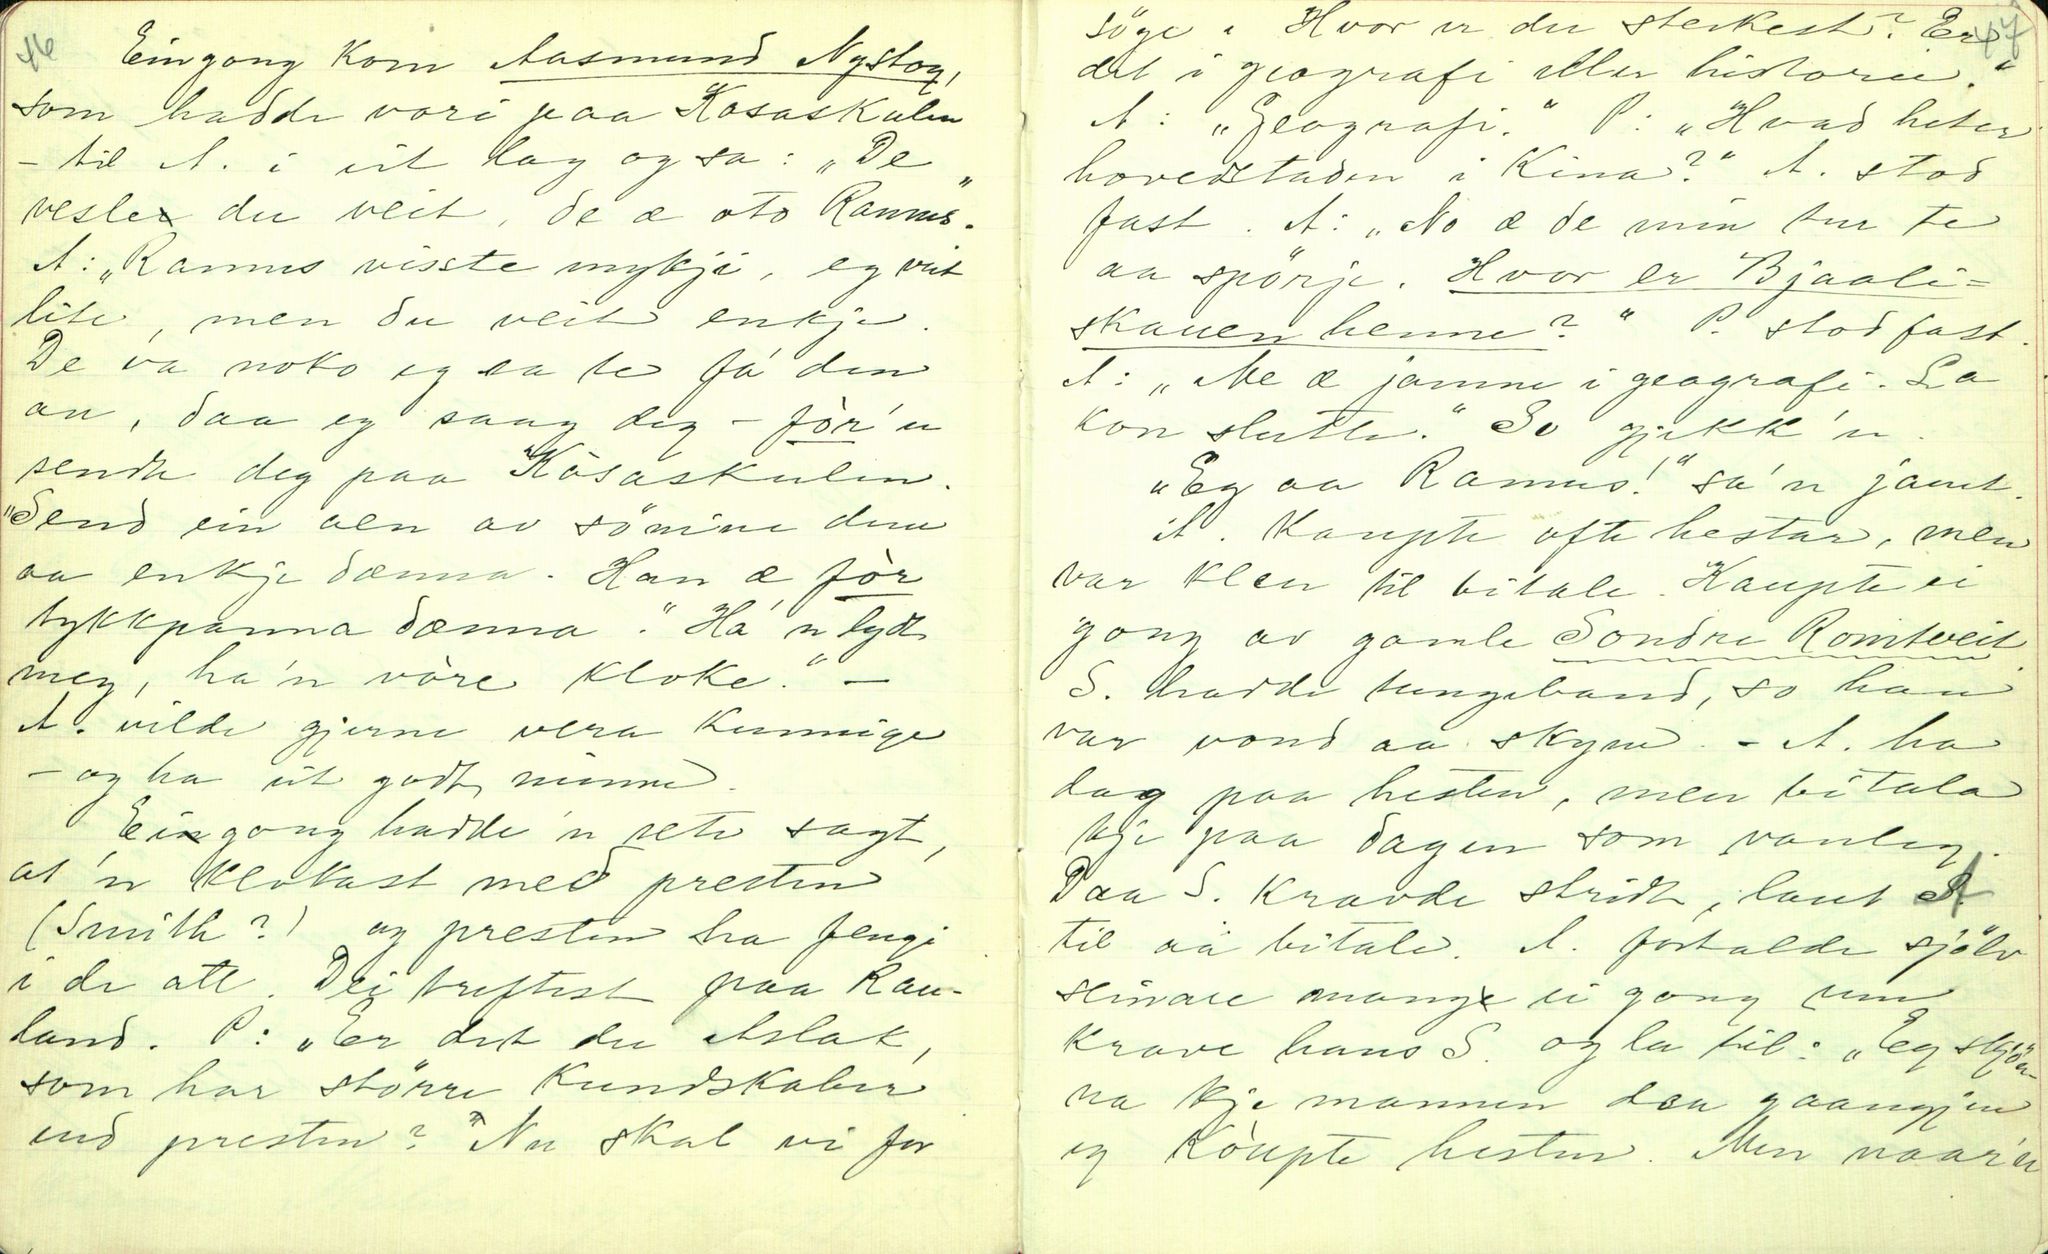 46
Eingong kom Aasmund Nystog,
som hadde vori paa Kosaskulen
- til A. i eit lag og sa: „De
vesle du veit, de æ oto Ramus."
A: „Ramus visste mykji, eg veit
lite, men du veit enkje.
De va noko eg sa te få den
an, daa eg saag deg - fòr 'n
sendte deg paa Kosaskulen.
"Send ein aen av sönine dine
aa enkje dænna. Han æ fòr
tykkpanna dænna." Ha 'n lydt
meg, ha 'n vòre kloke." -
A. vilde gjerne vera kunnige
- og ha eit godt minne.
Eingong hadde 'n rete sagt,
at 'n klokast med presten
(Smith?) og presten ha fengi
i de att. Dei treftest paa Rau-
land. P: „Er det du Aslak,
som har större kundskaber
end presten? Nu skal vi for
47
söge. Hvor er du sterkest? Er
det i geografi eller historie."
A: „Geografi." P: „Hvad heter
hovedstaden i Kina?" A. stod
fast. A: „No æ de min tur te
aa spörje. Hvor er Bjaali=
skauen henne?" P. stod fast.
A: „Me æ jamne i geografi. La
kon slutte." So gjekk 'n.
„Eg aa Ramus!" sa 'n jamt.
A. kaupte ofte hestar, men
var klen til bitale. Kaupte ei
gong av gamle Sondre Romtveit.
S. hadde tungeband, so han
var vond aa skyne. - A. ha
dag paa hesten, men bitala
kje paa dagen som vanleg.
Daa S. kravde stridt, laut A
til aa bitale. A. fortalde sjölv
seinare mange ei gong um
krave hans S. og la til: „Eg skjön-
na kje mannen daa gaangjen
eg kòupte hesten. Men naar 'n